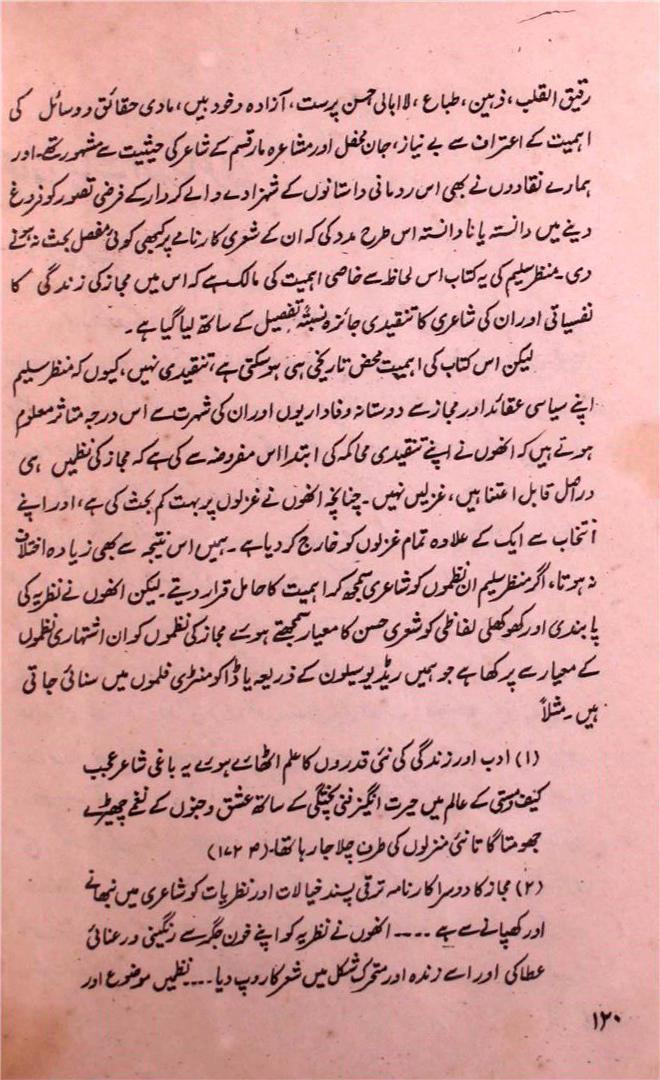 رقیق القلب، ذہین، طباع، لاابالی حسن پرست، آزادہ و خود بیں، مادی حقائق و وسائل کی
اہمیت کے اعتراف سے بے نیاز، جان محفل اور مشاعرہ مار قسم کے شاعر کی حیثیت سے مشہور تھے۔ اور
ہمارے نقادوں نے بھی اس رومانی داستانوں کے شہزادے والے کردار کے فرضی تصور کو فروغ
دینے میں دانستہ یا نادانستہ اس طرح مدد کی کہ ان کے شعری کارنامے پر کبھی کوئی مفصل بحث نہ ہونے
دی۔ منظر سلیم کی یہ کتاب اس لحاظ سے خاصی اہمیت کی مالک ہے کہ اس میں مجاز کی زندگی کا
نفسیاتی اور ان کی شاعری کا تنقیدی جائزہ نسبتہً تفصیل کے ساتھ لیا گیا ہے۔
لیکن اس کتاب کی اہمیت محض تاریخی ہی ہو سکتی ہے، تنقیدی نہیں، کیوں کہ منظر سلیم
اپنے سیاسی عقائد اور مجاز سے دوستانہ وفاداریوں اور ان کی شہرت سے اس درجہ متاثر معلوم
ہوتے ہیں کہ انھوں نے اپنے تنقیدی محاکمہ کی ابتدا اس مفروضہ سے کی ہے کہ مجاز کی نظمیں ہی
دراصل قابل اعتنا ہیں، غزلیں نہیں۔ چنانچہ انھوں نے غزلوں پر بہت کم بحث کی ہے، اور اپنے
انتخاب سے ایک کے علاوہ تمام غزلوں کو خارج کر دیا ہے۔ ہمیں اس نتیجہ سے بھی زیادہ اختلاف
نہ ہوتا، اگر منظر سلیم ان نظموں کو شاعری سمجھ کر اہمیت کا حامل قرار دیتے۔ لیکن انھوں نے نظریہ کی
پابندی اور کھوکھلی لفاظی کو شعری حسن کا معیار سمجھتے ہوئے مجاز کی نظموں کو ان اشتہاری نظموں
کے معیار سے پرکھا ہے جو ہمیں ریڈیو سیلون کے ذریعہ یا ڈاکومنٹری فلموں میں سنائی جاتی
ہیں۔ مثلاً
(۱) ادب اور زندگی کی نئی قدروں کا علم اٹھائے ہوئے یہ باغی شاعر عجب
کیف و مستی کے عالم میں حیرت انگیز فنی پختگی کے ساتھ عشق و جنوں کے نغمے چھیڑے
جھومتا گاتا نئی منزلوں کی طرف چلا جا رہا تھا۔ (ص ۱۷۲)
(۲) مجاز کا دوسرا کارنامہ ترقی پسند خیالات اور نظریات کو شاعری میں نبھانے
اور کھپانے سے ہے ۔۔۔۔ انھوں نے نظریہ کو اپنے خون جگر سے رنگینی و رعنائی
عطا کی اور اسے زندہ اور متحرک شکل میں شعر کا روپ دیا ۔۔۔۔ نظمیں موضوع اور
۱۲۰